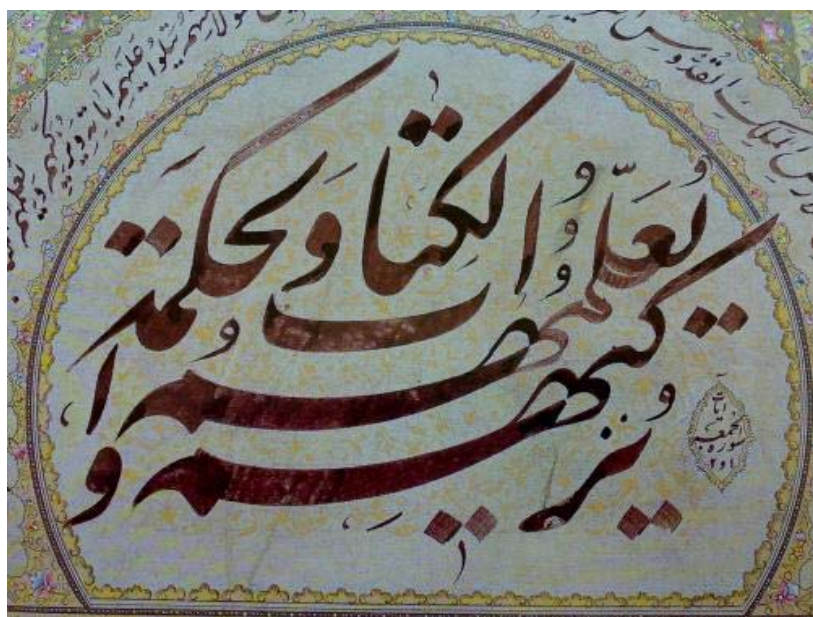 الملك القدوس
رسولا منهم يتلوا عليهم آياته و يزكيهم و يعلمهم
و يزكيهم
و يعلّمهم الكتاب و الحكمة
آيات
سورة الجمعة
١و٢